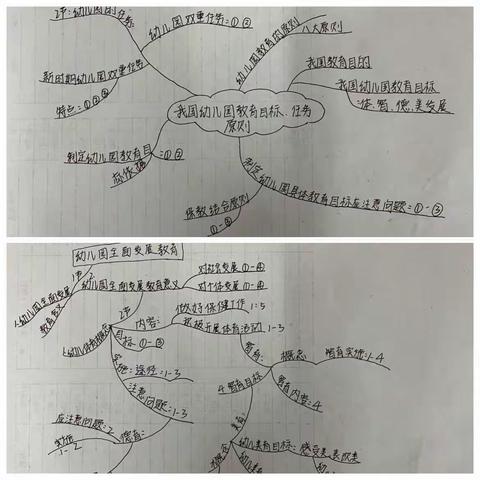 2节:幼儿园的任务
幼儿园双重任务:①②
新时期幼儿园双重任务
特点:①②③
制定幼儿园教育目
标依据
:①②
我国幼儿园教育目标、任务
原则
幼儿园教育的原则
八大原则
我国教育目的
我国幼儿园教育目标
:体、智、德、美发展
制定幼儿园具体教育目标应注意问题:①-③
保教结合原则
幼儿园全面发展教育
1节
幼儿园全面发展
教育含义
幼儿园全面发展教育意义
对社会发展①-④
对个体发展①-④
2节
幼儿体育概念
目标
内容:
做好保健工作1:5
积极开展体育活动1-3
途径:1-3
注意问题:1-3
德育:
应注意问题:2
1-2
智育:
概念
智育实施:1-4
智育目标
智育内容:4
美育:
幼儿美育目标:感受美、表现美